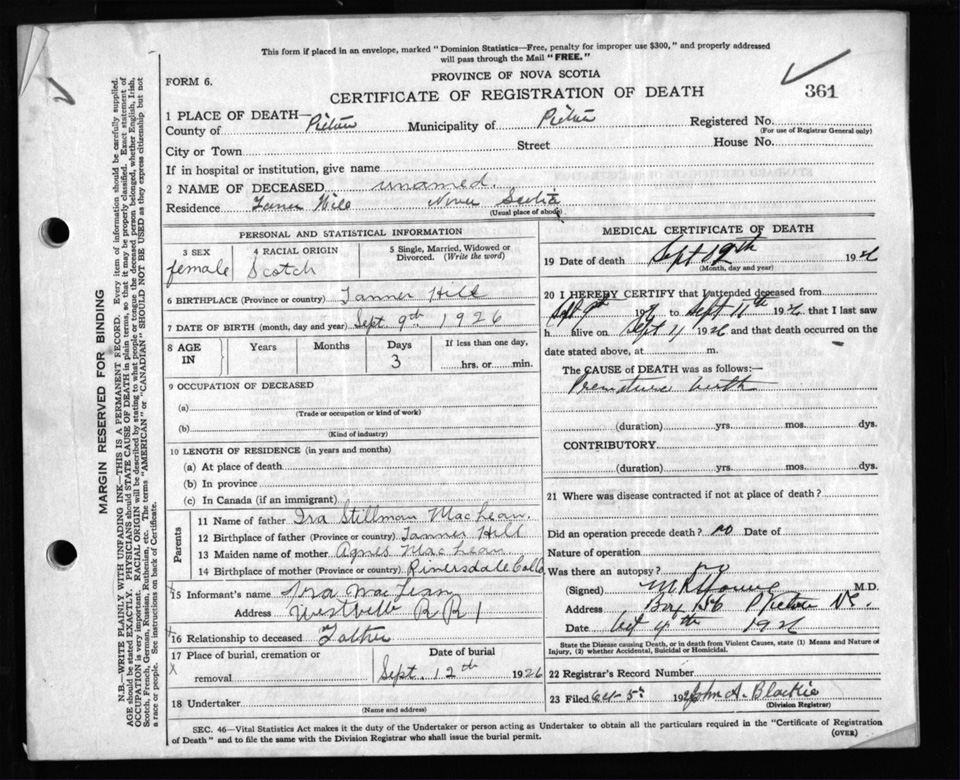 This form if placed in an envelope, marked "Dominion Statistics—Free, penalty for improper use $300," and properly addressed
will pass through the Mail "FREE."
FORM 6.
PROVINCE OF NOVA SCOTIA
CERTIFICATE OF REGISTRATION OF DEATH
361
1 PLACE OF DEATH—
County of Pictou Municipality of Pictou Registered No.
(For use of Registrar General only)
City or Town Street House No.
If in hospital or institution, give name
2 NAME OF DECEASED unamed.
Residence Nova Scotia
(Usual place of abode)
PERSONAL AND STATISTICAL INFORMATION
3 SEX female
4 RACIAL ORIGIN Scotch
5 Single, Married, Widowed or Divorced. (Write the word)
6 BIRTHPLACE (Province or country) Tanner Hill
7 DATE OF BIRTH (month, day and year) Sept. 9th 1926
8 AGE IN Years Months Days 3 If less than one day, hrs. or min.
9 OCCUPATION OF DECEASED
(a)
(Trade or occupation or kind of work)
(b)
(Kind of industry)
10 LENGTH OF RESIDENCE (in years and months)
(a) At place of death
(b) In province
(c) In Canada (if an immigrant)
Parents
11 Name of father Ira Stillman MacLean.
12 Birthplace of father (Province or country) Tanner Hill
13 Maiden name of mother Agnes MacLean
14 Birthplace of mother (Province or country)
15 Informant's name Ira MacLean
Address Westville R R 1
16 Relationship to deceased Father
17 Place of burial, cremation or removal
Date of burial
Sept. 12th 1926
18 Undertaker
(Name and address)
MEDICAL CERTIFICATE OF DEATH
19 Date of death Sept 192
(Month, day and year)
20 I HEREBY CERTIFY that I attended deceased from
Sept 9th 1926 to Sept 11th 1926 that I last saw
h alive on Sept 11 1926 and that death occurred on the
date stated above, at m.
The CAUSE of DEATH was as follows:—
Premature birth
(duration) yrs. mos. dys.
CONTRIBUTORY
(duration) yrs. mos. dys.
21 Where was disease contracted if not at place of death?
Did an operation precede death? no Date of
Nature of operation
Was there an autopsy?
(Signed) M.D.
Address Box 156 Pictou N.S.
Date 4th 1926
State the Disease causing Death, or in death from Violent Causes, state (1) Means and Nature of Injury, (2) whether Accidental, Suicidal or Homicidal.
22 Registrar's Record Number
23 Filed Oct 5 192 John A. Blackie
(Division Registrar)
SEC. 46—Vital Statistics Act makes it the duty of the Undertaker or person acting as Undertaker to obtain all the particulars required in the "Certificate of Registration
of Death" and to file the same with the Division Registrar who shall issue the burial permit.
(OVER)
MARGIN RESERVED FOR BINDING
N.B.—WRITE PLAINLY WITH UNFADING INK—THIS IS A PERMANENT RECORD. Every item of information should be carefully supplied.
AGE should be stated EXACTLY. PHYSICIANS should STATE CAUSE OF DEATH in plain terms, so that it may be properly classified. Exact statement of
OCCUPATION is very important. RACIAL ORIGIN will be described by stating to what people or tongue the deceased person belonged, whether English, Irish,
Scotch, French, German, Russian, Ruthenian, etc. The terms "AMERICAN" or "CANADIAN" SHOULD NOT BE USED as they express citizenship but not
a race or people. See instructions on back of Certificate.